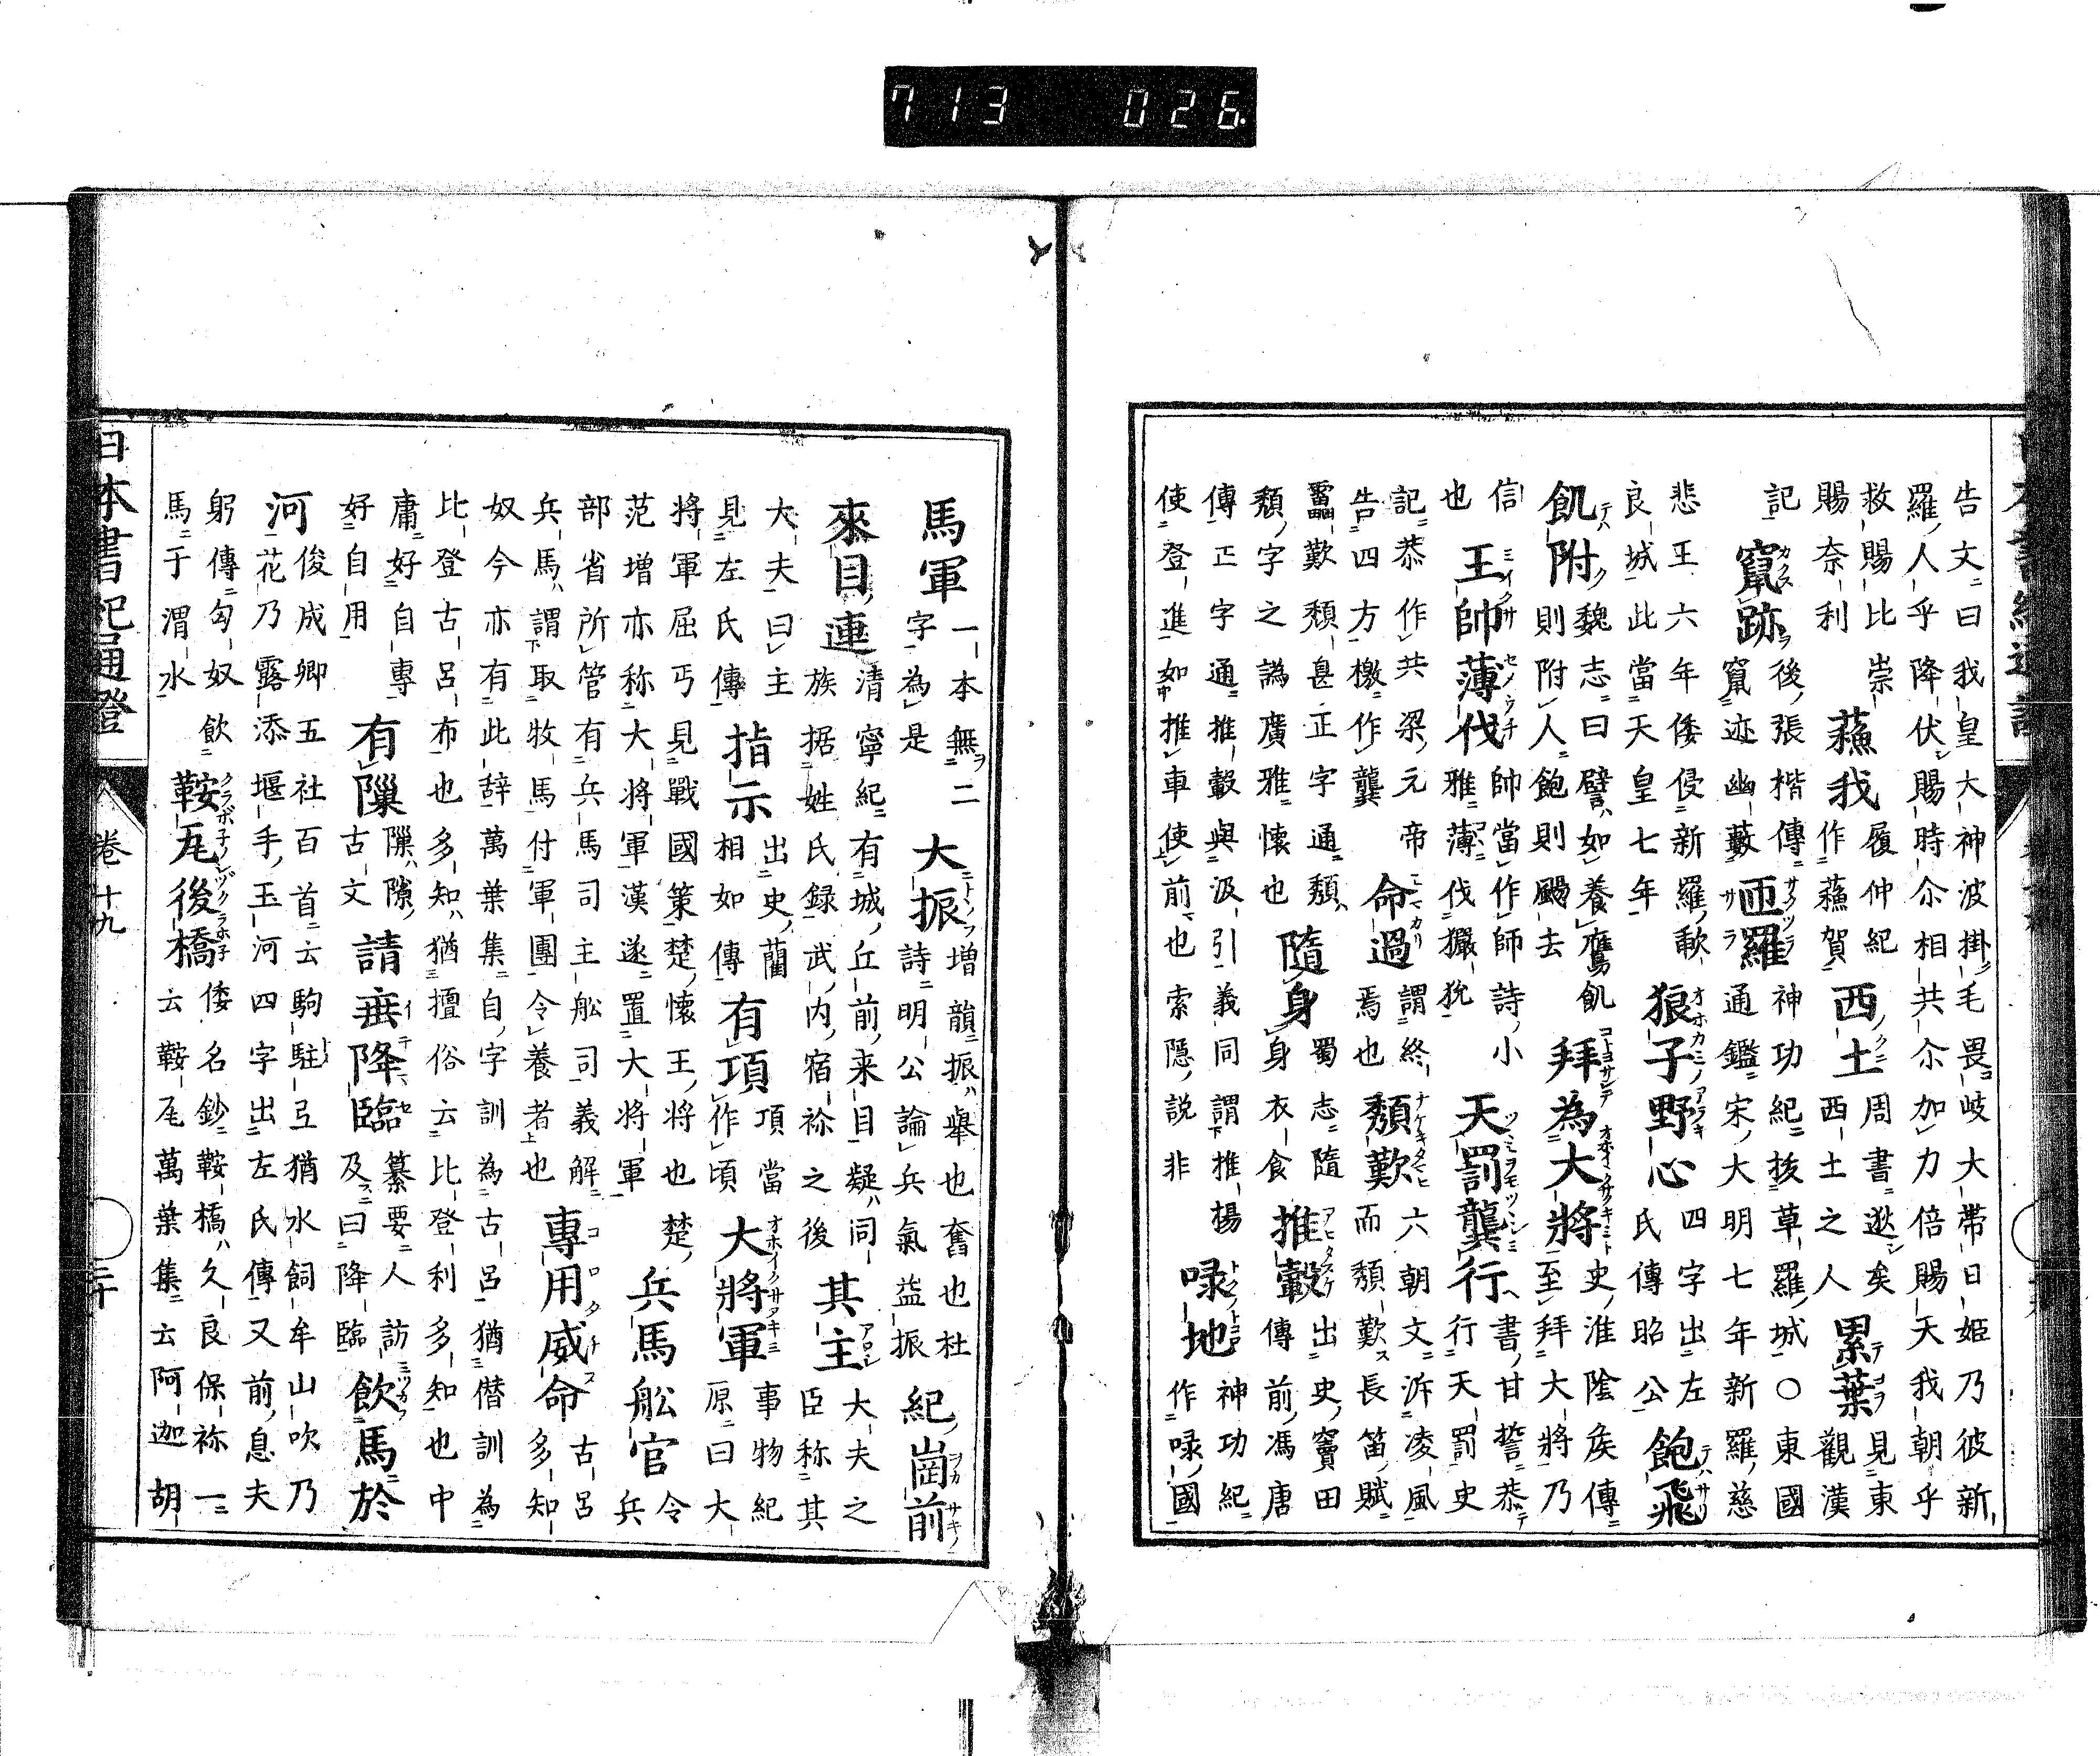 713 026
告文曰我皇大神波掛毛畏岐大帯日姫乃彼新
羅人乎降伏賜時尒相共尒加力倍賜天我朝乎
救賜比崇
賜奈利 蘓我 履仲紀作蘓賀 西土 周書逖矣西土之人 累葉 見東觀漢
記 竄跡 後漢張楷傳竄迹幽藪 匝羅 神功紀抜草羅城○東國通鑑宋大明七年新羅慈
悲王六年倭侵新羅歃
良城此當天皇七年 狼子野心 四字出左氏傳昭公 飽飛
飢附 魏志曰譬如養鷹飢則附人飽則颺去 拜為大將 史淮陰侯傳至拜大將乃
信
也 王帥薄伐 帥當作師詩小雅薄伐玁狁 天罰龔行 書甘誓恭行天罰史
記恭作共梁元帝
告四方檄作龔 命過 謂終焉也 頽歎 六朝文泝凌風而頽歎長笛賦
靁歎頽息正字通頽
頽字之譌廣雅懷也 隨身 蜀志隨身衣食 推轂 出史竇田傳前馮唐
傳正字通推轂與汲引義同謂推楊
使登進如推車使前也索隠説非 㖨地 神功紀作㖨國
馬軍 一本無二字為是 大振 増韻振擧也奮也杜詩明公論兵氣益振 紀崗前
來目連 清寧紀有城丘前来目疑同族据姓氏録武内宿祢之後 其主 大夫之臣称其
大夫曰主
見左氏傳 指示 出史藺相如傳 有項 項當作頃 大將軍 事物紀原曰大
將軍屈丐見戰國策楚懷王將也楚
范増亦称大將軍漢遂置大將軍 兵馬舩官 令兵
部省所管有兵馬司主舩司義解
兵馬謂取牧馬付軍團令養者也 專用威命 古呂多知
奴今亦有此辞萬葉集自字訓為古呂猶僣訓為
比登古呂布也多知猶擅俗云比登利多知也中
庸好自專
好自用 有隟 隟隙古文 請垂降臨 纂要人訪及曰降臨 飲馬於
河 俊成卿五社百首云駒駐弖猶水飼牟山吹乃
花乃露添堰手玉河四字出左氏傳又前息夫
躬傳匈奴飲
馬于渭水 鞍瓦後橋 倭名鈔鞍橋久良保祢一云鞍瓦萬葉集云阿迦胡
日本書紀通證 卷十九 三十